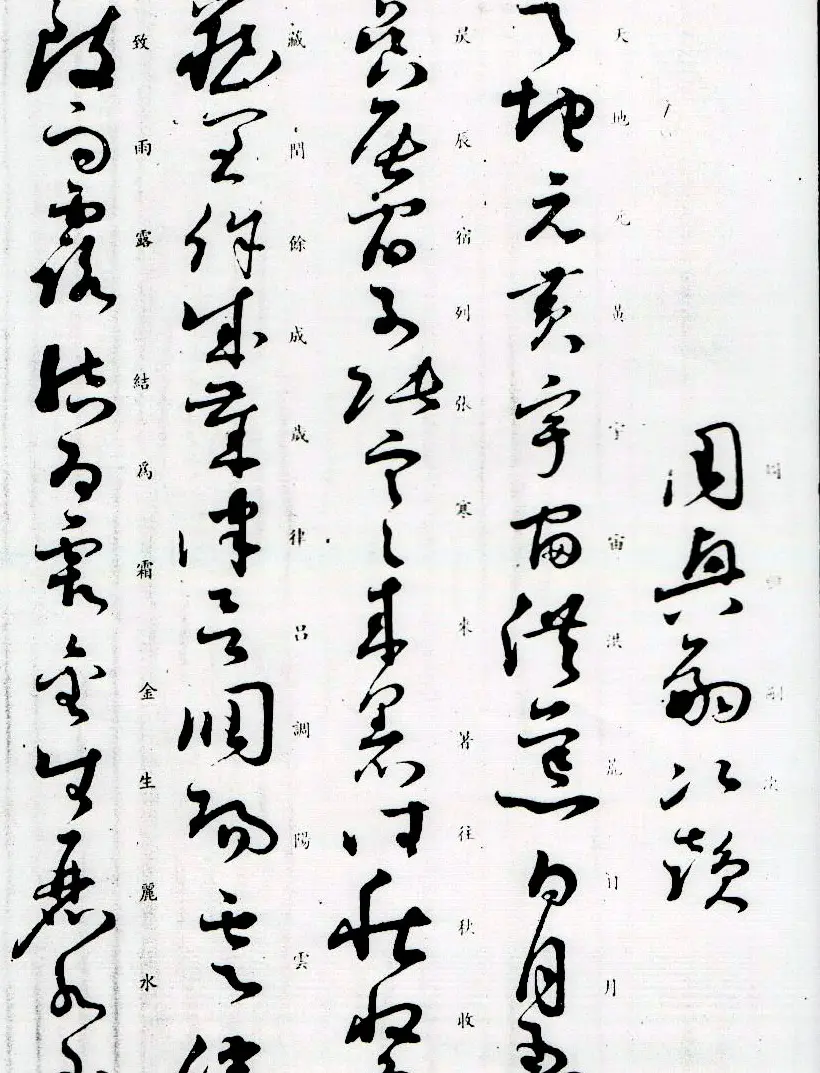 周興嗣次
周興嗣次韻
天地元黃宇宙洪荒日月
天地元黃宇宙洪荒日月
昃辰宿列張寒來暑往秋收
昃辰宿列張寒來暑往秋收
藏閏餘成歲律呂調陽雲
藏閏餘成歲律呂調陽雲
致雨露結爲霜金生麗水
致雨露結爲霜金生麗水